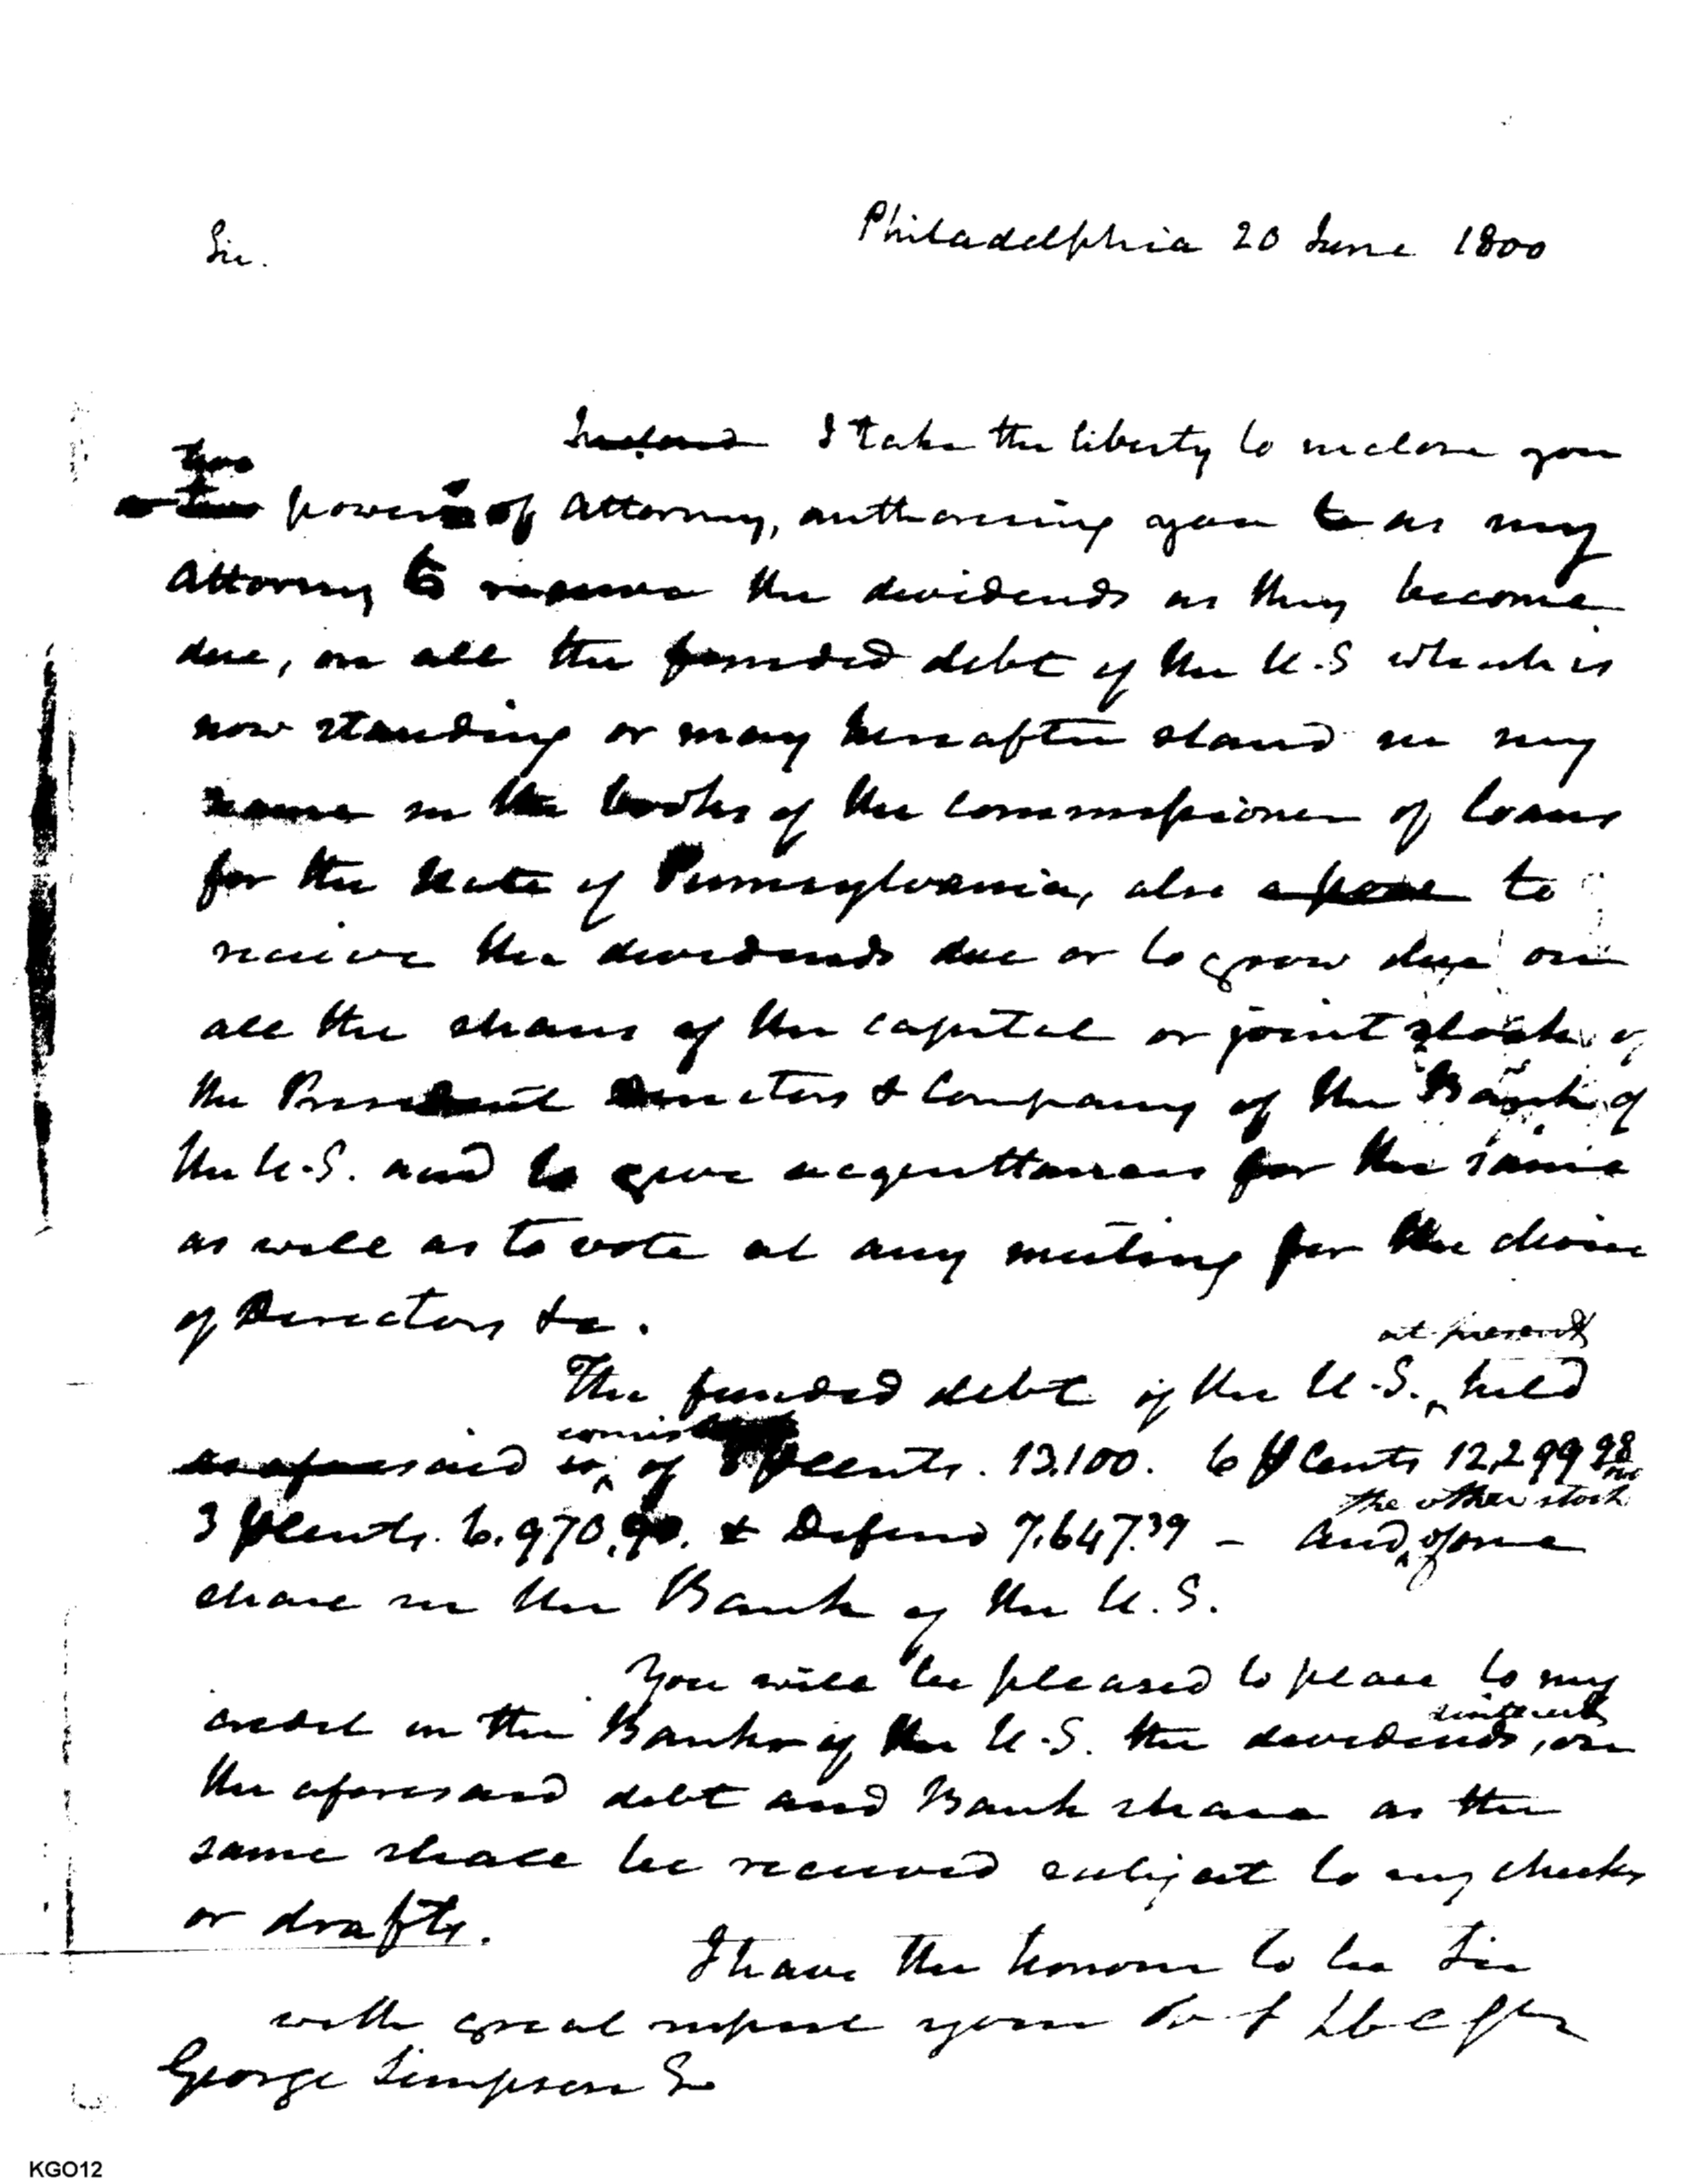 Philadelphia 20 June 1800
Sir.
Inclosed I take the liberty to inclose you
two
a two powers of attorney, authorising you to as my
attorney to receive the dividends as they become
due, on all the funded debt of the U.S which is
now standing or may hereafter stand in my
name in the books of the commissioner of loans
for the State of Pennsylvania, also a powe to
receive the dividends due or to grow due on
all the shares of the capital or joint stock of
the President Directors & Company of the Bank of
the U.S. and to give acquittances for the same
as well as to vote at any meeting for the choice
of Directors &c.
at present
The funded debt of the U.S. held
consists
as aforesaid is of 8 ⅌Cents. 13,100. 6 ⅌Cents 12,299 98
the other stock
3 ⅌Cents. 6,970.90. & Defered 7,647.39 – and of one
share in the Bank of the U.S.
You will be pleased to place to my
interest
credit in the Bank of the U.S. the dividends, on
the aforesaid debt and Bank share as the
same shall be received subject to my checks
or drafts.
I have the honour to be Sir
with great respect your
George Simpson Esq
KGO12